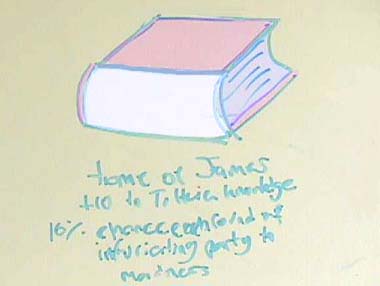 tome of James
+10 to Trivia knowledge
10% chance each round of
infuriating party to
madness